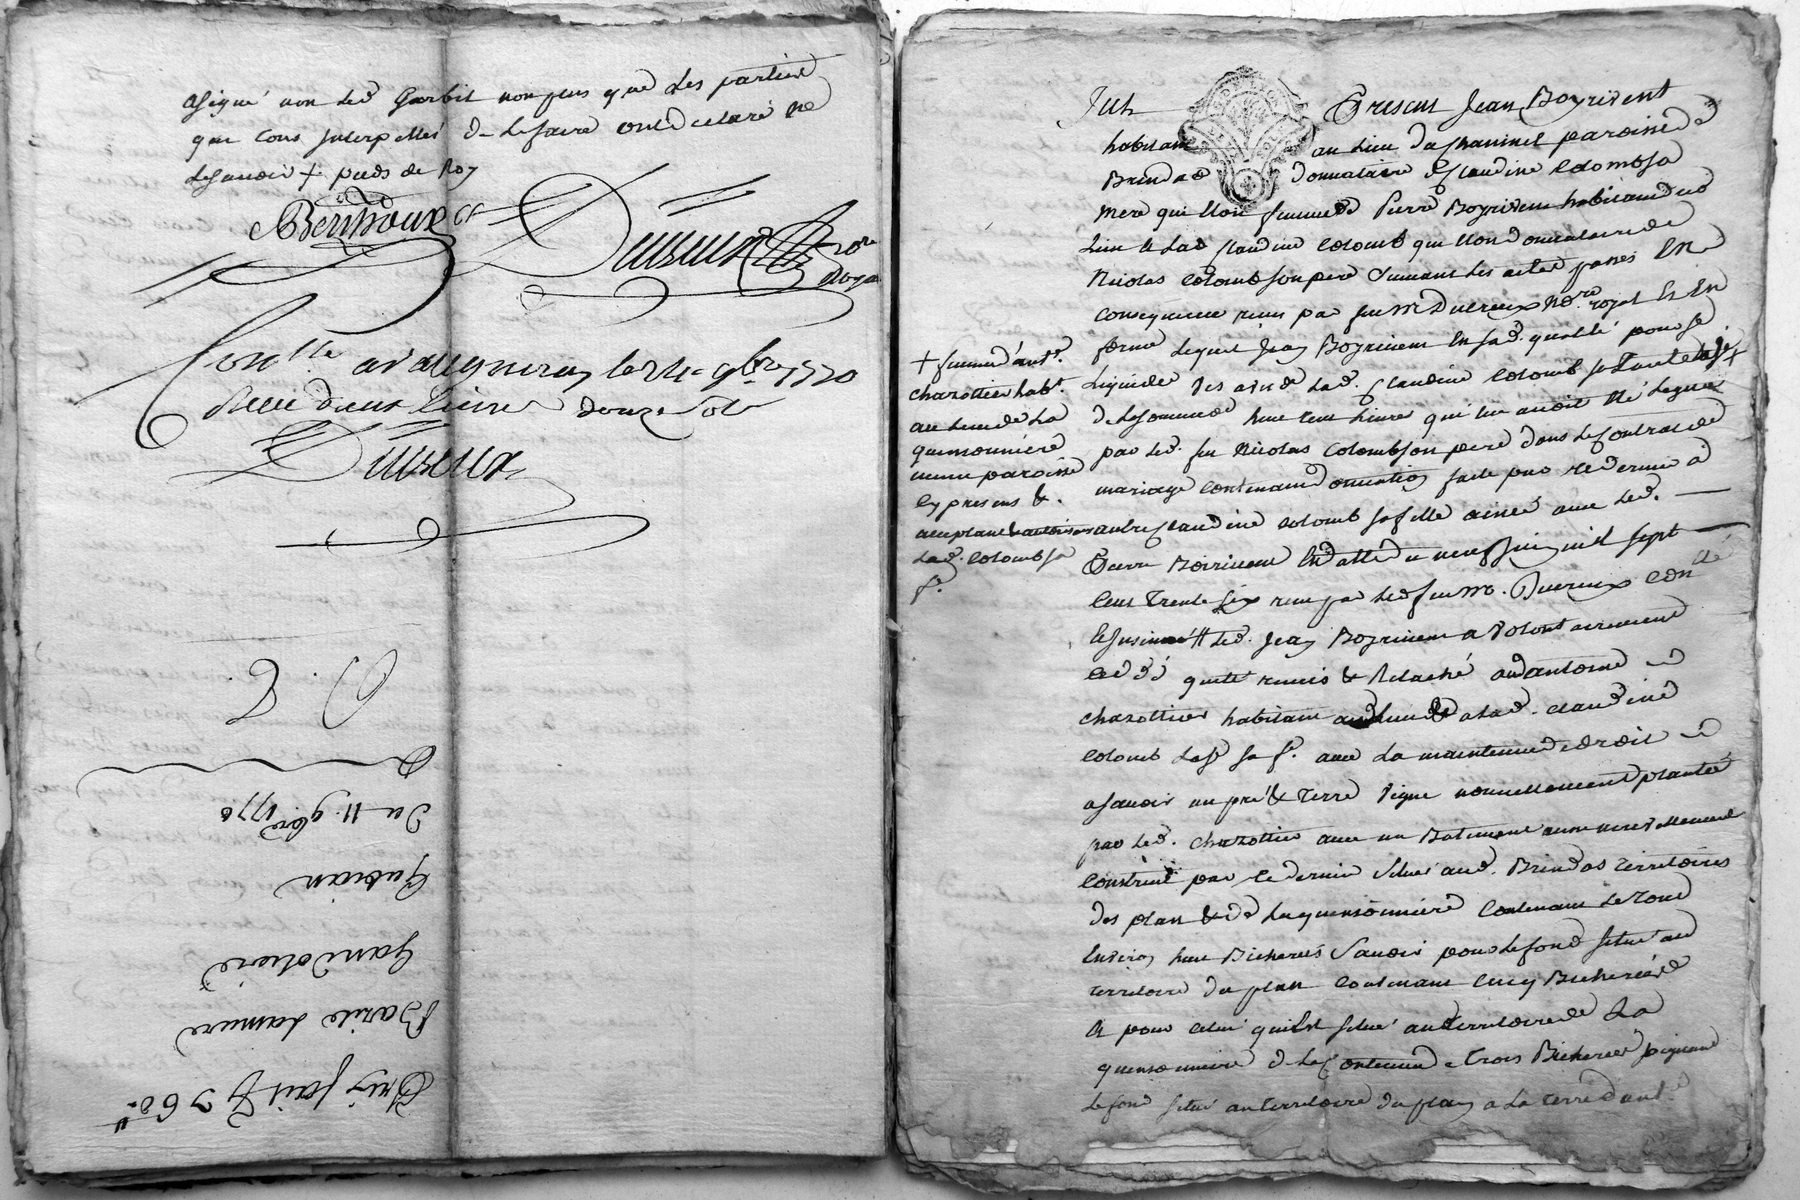 a signé non led. Garbit non plus que les parties
que tous interpellés de le faire ont déclaré ne
le savoir + pieds de Roy
Berthoux
Dussurx
royal
Con.lle a le 24e 9bre 1770
deux livres douze sols
Dussurx
Du 11. 9bre 1770
Gubian
Prix fait 360.
Fut Present Jean Boyrivent
habitant au lieu du Chaninel paroisse de
Brindas donnataire de Claudine Colomb sa
mere qui étoit femme de Pierre Boyrivent habitant dud.
lieu & lad. Claudine Colomb qui étoit donnataire de
Nicolas Colomb son pere suivant les actes passés en
consequence reçus par feu Mr Ducreux No.re royal & en
forme lequel Jean Boyrivent en lad. qualité pour se
liquider vis a vis de lad. Claudine Colomb sa tante
de la somme de huit cent livres qui lui avoit été leguée
par led. feu Nicolas Colomb son pere dans le contrat de
mariage contenant donation faite par ce dernier à
autre Claudine Colomb sa fille ainée avec led.
Pierre Boirivent en datte du neuf Juin mil sept
cent trente six reçu par led. feu Mr. Ducreux con.llé
& insinué led. Jean Boyrivent a volontairement
cedé quité remis & relaché aud. antoine
chazottier habitant a lad. claudine
colomb sa f. avec la maintenue de droit
a savoir un pré & terre vigne nouvellement plantée
par led. chazottier avec un Batiment aussi nouvellement
construit par ce dernier situés aud. Brindas territoires
des plan & de la quinsonniere contenant le tout
environ huit Bicherées savoir pour le fond situé au
territoire du plan contenant cinq Bicherées
& pour celui qui est situé au territoire de La
quinsonniere de la contenue de trois Bicherées joignant
le fond situé au territoire du plan a la terre d'ant.e
+ femme d'ant.e
chazottier hab.t
au lieu de La
quinsonniere
meme paroisse
cy present &
acceptant & autorisant
lad. Colomb sa
f.